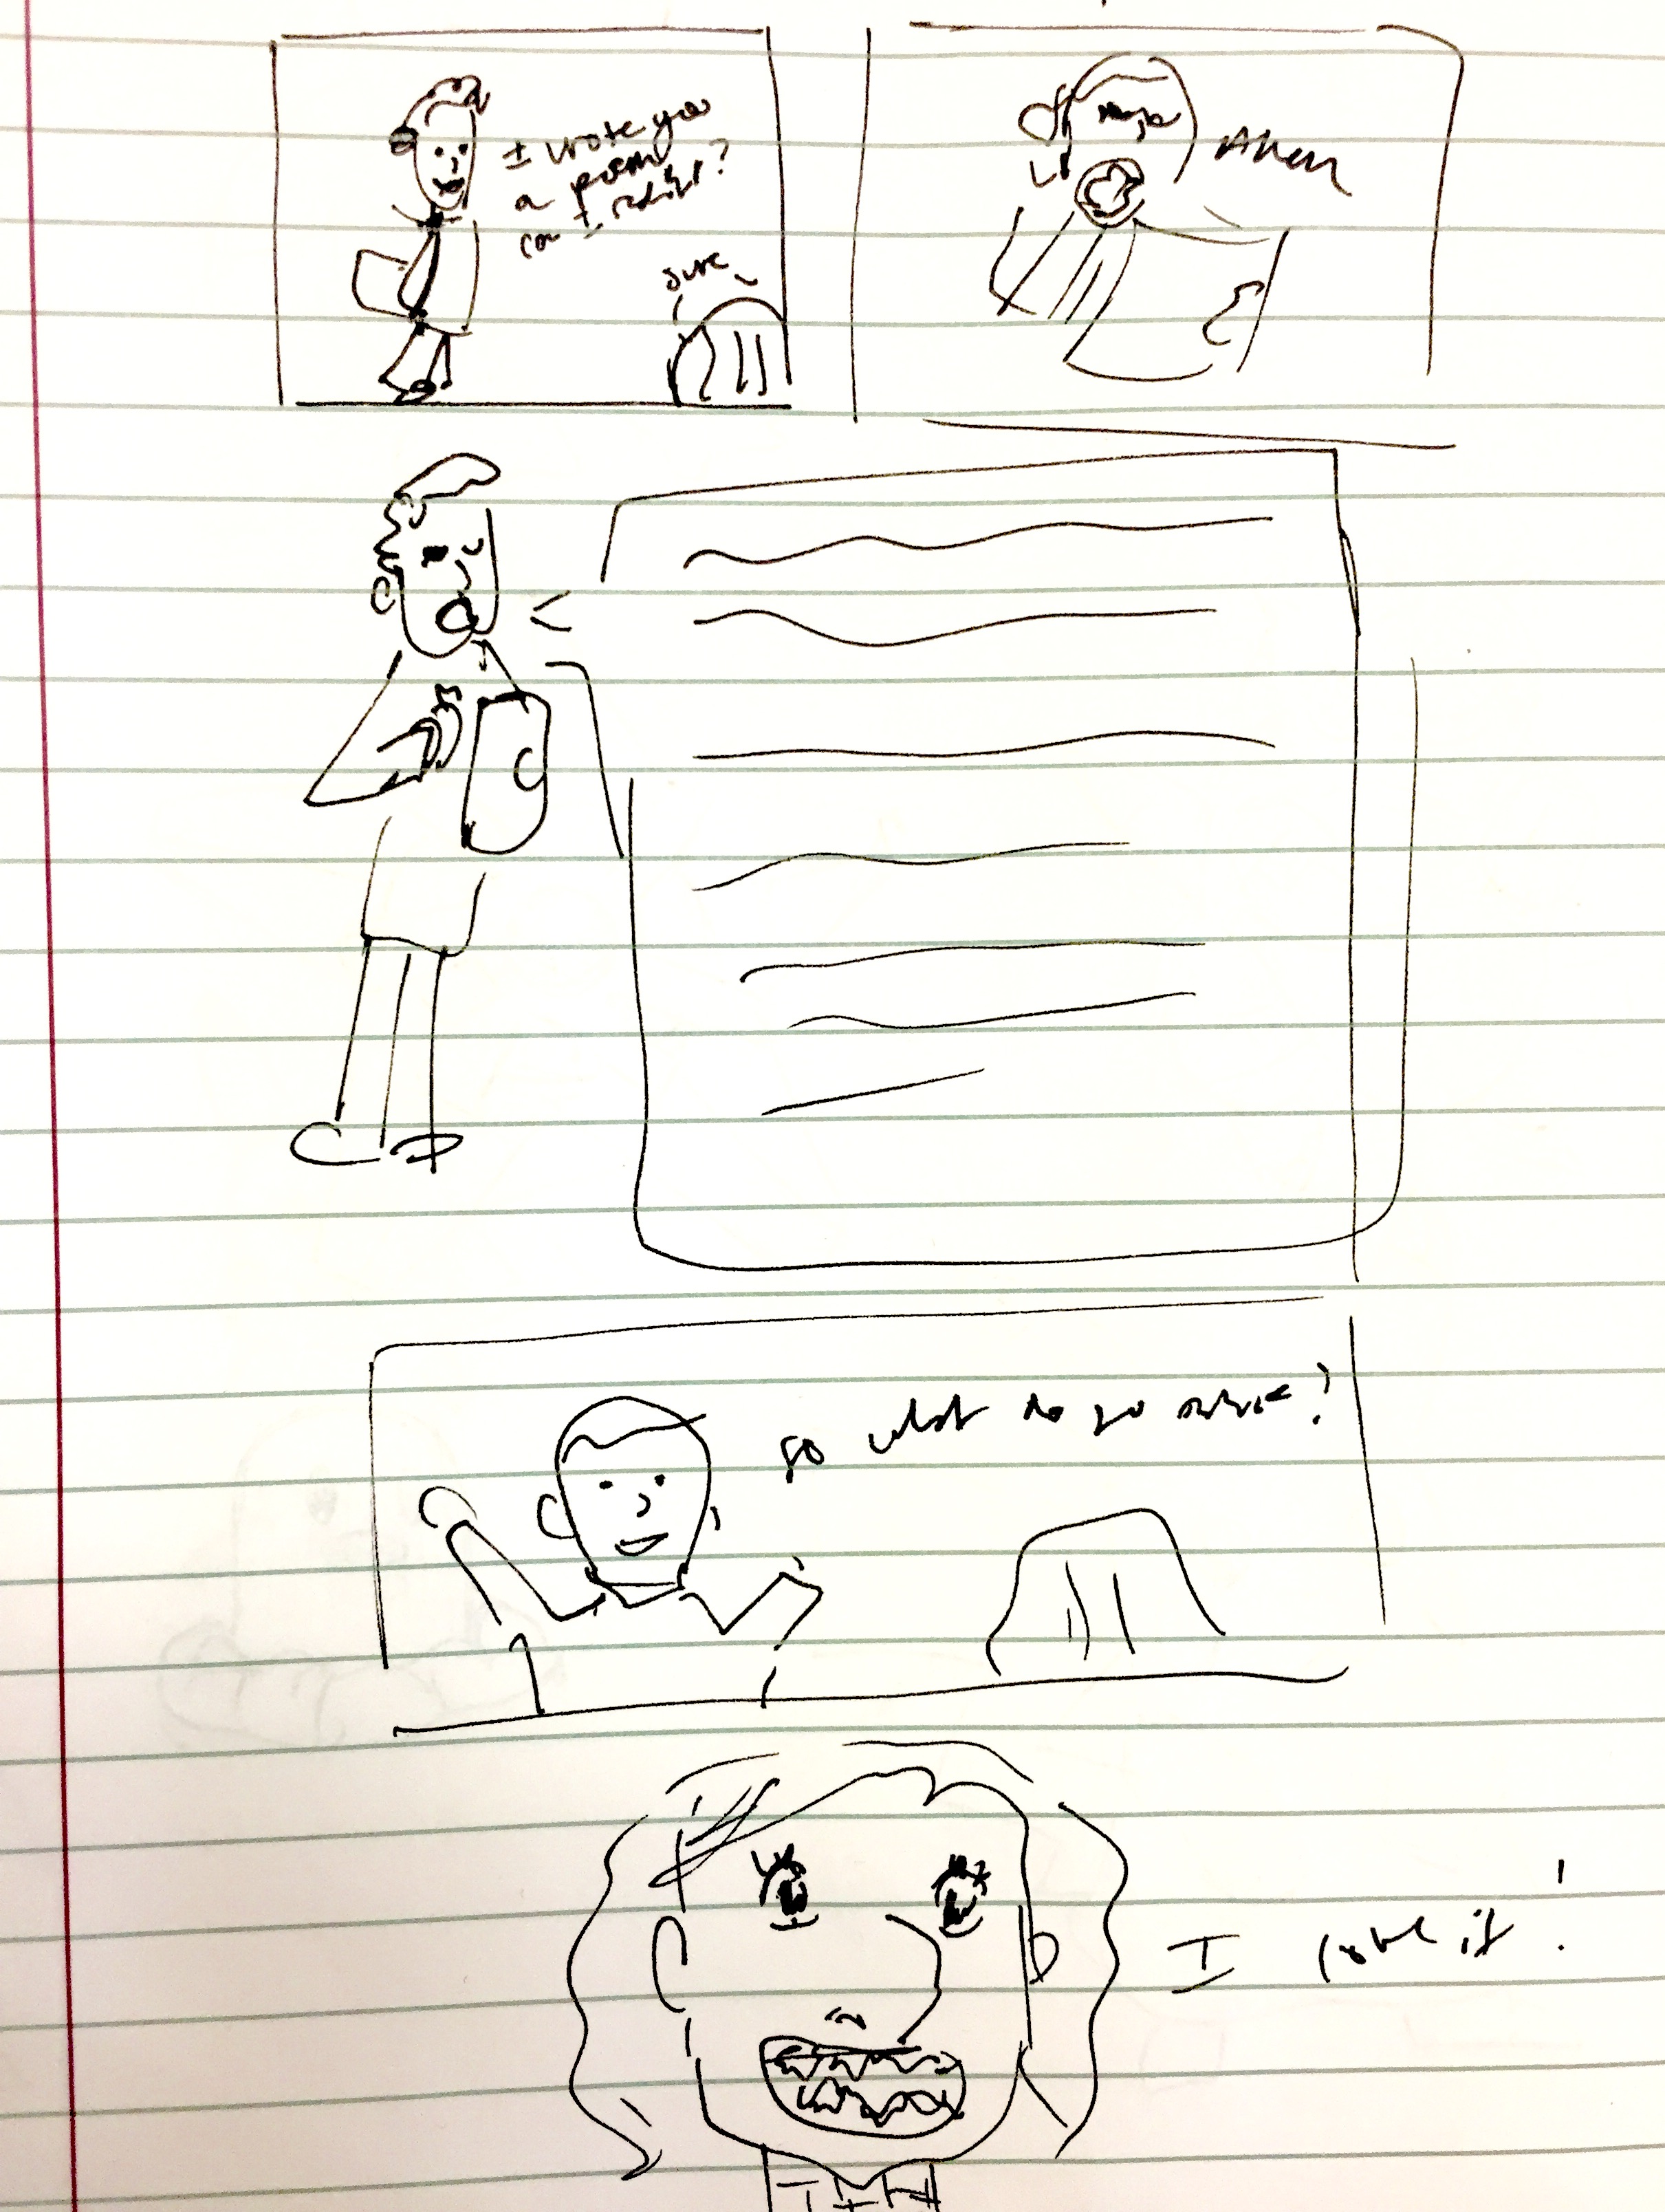 I wrote you
a poem
can I recite it?
sure
Ahem
so what do you think?
I love it!